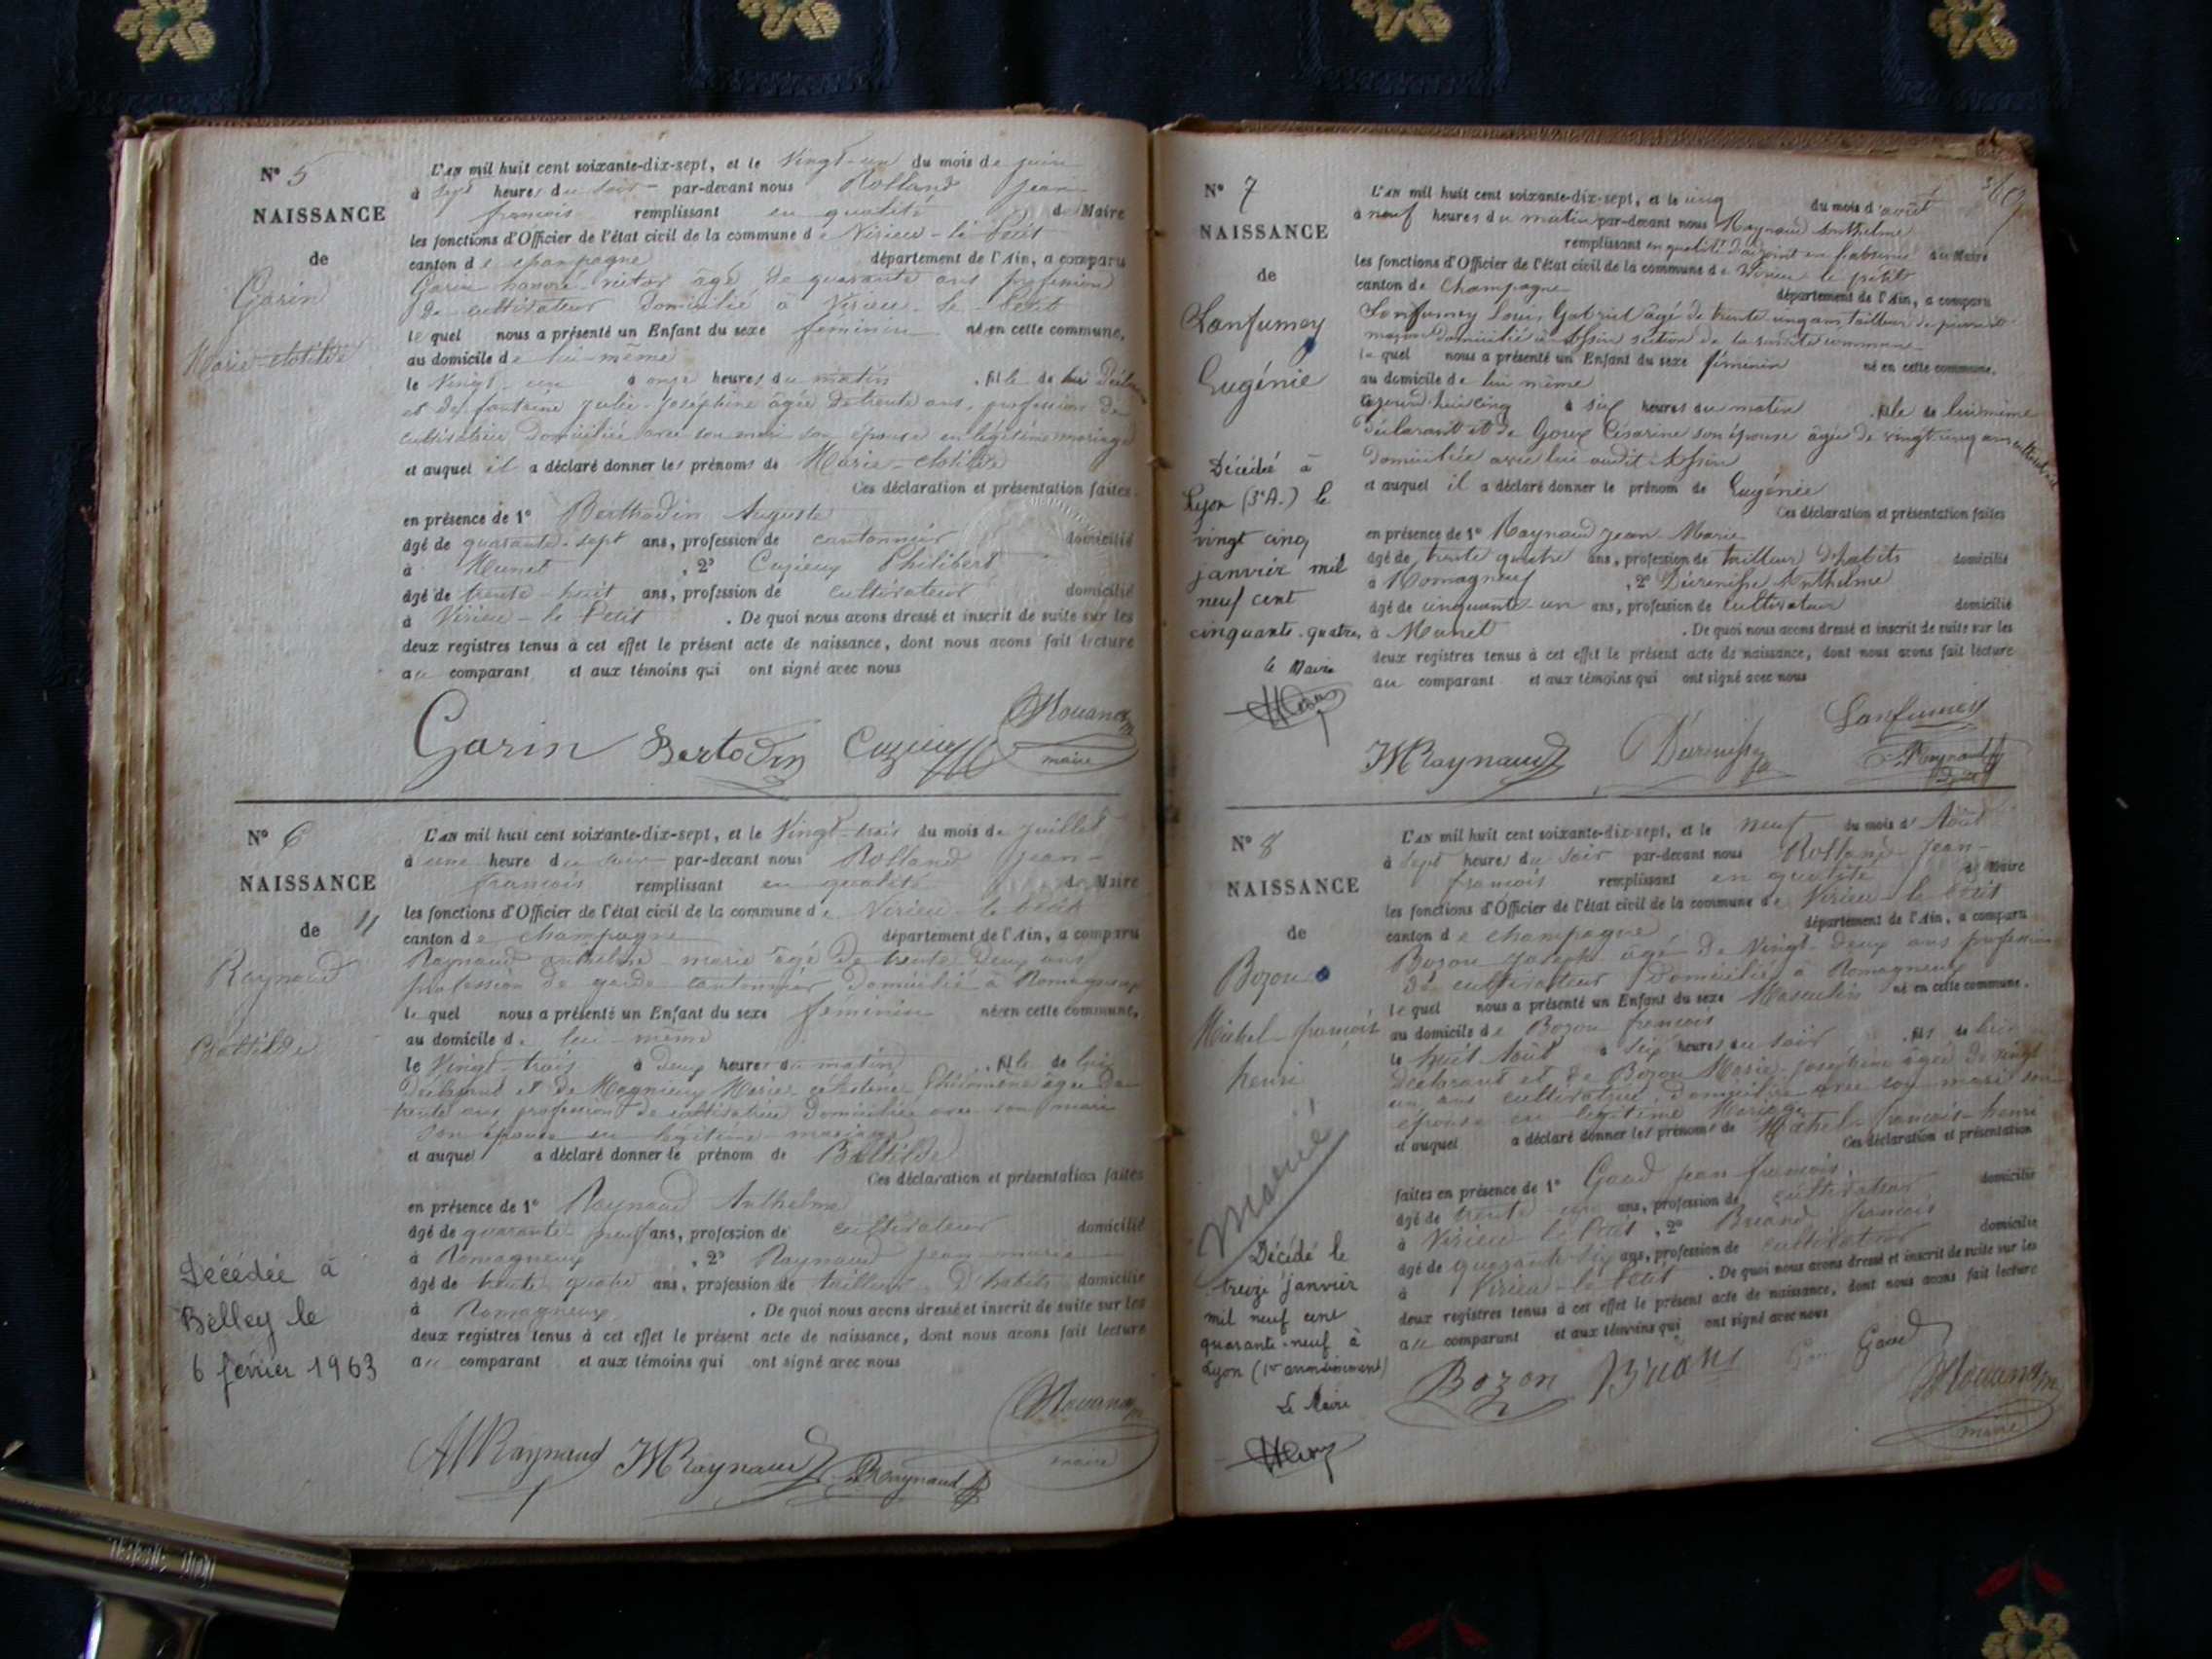 N° 5
NAISSANCE
de
Garin
Marie-clotilde
L'AN mil huit cent soixante-dix-sept, et le Vingt-un du mois de juin
à sept heures du soir par-devant nous Rolland Jean
françois remplissant en qualité de Maire
les fonctions d'Officier de l'état civil de la commune de Virieu-le-Petit
canton de champagne département de l'Ain, a comparu
Garin honoré-victor âgé de quarante ans profession
de cultivateur domicilié à Virieu-le-Petit
lequel nous a présenté un Enfant du sexe féminin né en cette commune,
au domicile de lui-même
le Vingt-un à onze heures du matin, fille de lui Déclarant
et de fontaine Julie-Joséphine âgée de trente ans, profession de
cultivatrice domiciliée avec son mari son épouse en légitime mariage
et auquel il a déclaré donner les prénoms de Marie-clotilde
Ces déclaration et présentation faites
en présence de 1° Berthodin Auguste
âgé de quarante-sept ans, profession de cantonnier domicilié
à Munet, 2° Cuzieux Philibert
âgé de trente-huit ans, profession de cultivateur domicilié
à Virieu-le-Petit. De quoi nous avons dressé et inscrit de suite sur les
deux registres tenus à cet effet le présent acte de naissance, dont nous avons fait lecture
au comparant et aux témoins qui ont signé avec nous
Garin Bertodin Cuzieux
maire
N° 6
NAISSANCE
de 11
Raynaud
Baltilde
Décédée à
Belley le
6 février 1963
L'AN mil huit cent soixante-dix-sept, et le Vingt-trois du mois de Juillet
à une heure du soir par-devant nous Rolland Jean-
françois remplissant en qualité de Maire
les fonctions d'Officier de l'état civil de la commune de Virieu-le-Petit
canton de champagne département de l'Ain, a comparu
Raynaud anthelme-marie âgé de trente deux ans
profession de garde cantonnier domicilié à Romagneux
lequel nous a présenté un Enfant du sexe féminin né en cette commune,
au domicile de lui-même
le Vingt-trois à deux heures du matin, fille de lui
Déclarant et de Magnieux Marie Philomène âgée de
trente ans profession de cultivatrice domiciliée avec son mari
son épouse en légitime mariage
et auquel a déclaré donner le prénom de Baltilde
Ces déclaration et présentation faites
en présence de 1° Raynaud Anthelme
âgé de quarante-neuf ans, profession de cultivateur domicilié
à Romagneux, 2° Raynaud Jean-marie
âgé de trente-quatre ans, profession de tailleur d'habits domicilié
à Romagneux. De quoi nous avons dressé et inscrit de suite sur les
deux registres tenus à cet effet le présent acte de naissance, dont nous avons fait lecture
au comparant et aux témoins qui ont signé avec nous
AMRaynaud JMRaynaud Raynaud
maire
N° 7
NAISSANCE
de
Lanfumey
Eugénie
Décédée à
Lyon (3e A.) le
vingt cinq
janvier mil
neuf cent
cinquante-quatre,
le Maire
L'AN mil huit cent soixante-dix-sept, et le cinq du mois d'août
à neuf heures du matin par-devant nous Raynaud Anthelme
remplissant en qualité d'adjoint en l'absence du Maire
les fonctions d'Officier de l'état civil de la commune de Virieu le petit
canton de Champagne département de l'Ain, a comparu
Lanfumey Louis Gabriel âgé de trente cinq ans tailleur de pierres et
maçon domicilié à Assin section de la susdite commune
lequel nous a présenté un Enfant du sexe féminin né en cette commune,
au domicile de lui même
aujourd'hui cinq à six heures du matin, fille de lui même
déclarant et de Goux Césarine son épouse âgée de vingt-cinq ans cultivatrice
domiciliée avec lui audit Assin
et auquel il a déclaré donner le prénom de Eugénie
Ces déclaration et présentation faites
en présence de 1° Raynaud Jean Marie
âgé de trente quatre ans, profession de tailleur d'habits domicilié
à Romagneux, 2° Anthelme
âgé de cinquante-un ans, profession de cultivateur domicilié
à Munet. De quoi nous avons dressé et inscrit de suite sur les
deux registres tenus à cet effet le présent acte de naissance, dont nous avons fait lecture
au comparant et aux témoins qui ont signé avec nous
Lanfumey
JMRaynaud Raynaud
N° 8
NAISSANCE
de
Bozon
Michel-françois
henri
Marié
Décédé le
treize janvier
mil neuf cent
quarante-neuf à
Lyon (1er arrondissement)
Le Maire
L'AN mil huit cent soixante-dix-sept, et le neuf du mois d'Août
à sept heures du soir par-devant nous Rolland Jean-
françois remplissant en qualité de Maire
les fonctions d'Officier de l'état civil de la commune de Virieu-le-Petit
canton de champagne département de l'Ain, a comparu
Bozon Joseph âgé de Vingt-deux ans profession
de cultivateur domicilié à Romagneux
lequel nous a présenté un Enfant du sexe Masculin né en cette commune,
au domicile de Bozon françois
le huit Août à six heures du soir, fils de lui
déclarant et de Bozon Marie-Joséphine âgée de vingt
un ans cultivatrice, domiciliée avec son mari son
épouse en légitime Mariage
et auquel a déclaré donner les prénoms de Michel-françois-henri
Ces déclaration et présentation
faites en présence de 1° Gaud Jean françois,
âgé de trente-un ans, profession de cultivateur domicilié
à Virieu-le-Petit, 2° Briand françois
âgé de quarante-six ans, profession de cultivateur domicilié
à Virieu-le-Petit. De quoi nous avons dressé et inscrit de suite sur les
deux registres tenus à cet effet le présent acte de naissance, dont nous avons fait lecture
au comparant et aux témoins qui ont signé avec nous
Bozon Gaud
maire